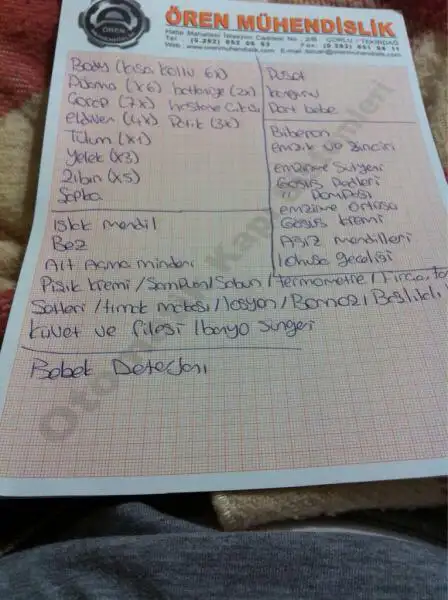 ÖREN MÜHENDİSLİK
ÖREN
MÜHENDİSLİK
Hatip Mahallesi İstasyon Caddesi No: 2/B ÇORLU - TEKİRDAĞ
Tel : (0.282) 652 Fax: (0.282) 651
Web : www.orenmuhendislik.com E-mail:
Body (kısa kollu 6x)
Pijama (x6) battaniye (2x)
Çorap (7x) hastane çıkışı
eldiven (4x) Patik (3x)
Tulum (x1)
Yelek (x3)
Zıbın (x5)
Şapka
Puset
kanguru
Port bebe
Biberon
emzik ve zinciri
emzirme sütyeni
Göğüs Pedleri
" Pompası
emzirme örtüsü
Göğüs kremi
Ağız mendilleri
lohusa geceliği
Islak mendil
Bez
Alt Açma minderi
Pişik kremi / Şampuan / Sabun / Termometre / Tırnak
Setleri / tırnak makası / losyon / Bornoz / Başlıklı
Küvet ve filesi / banyo süngeri
Bebek Deterjanı
Otomatik Kapı